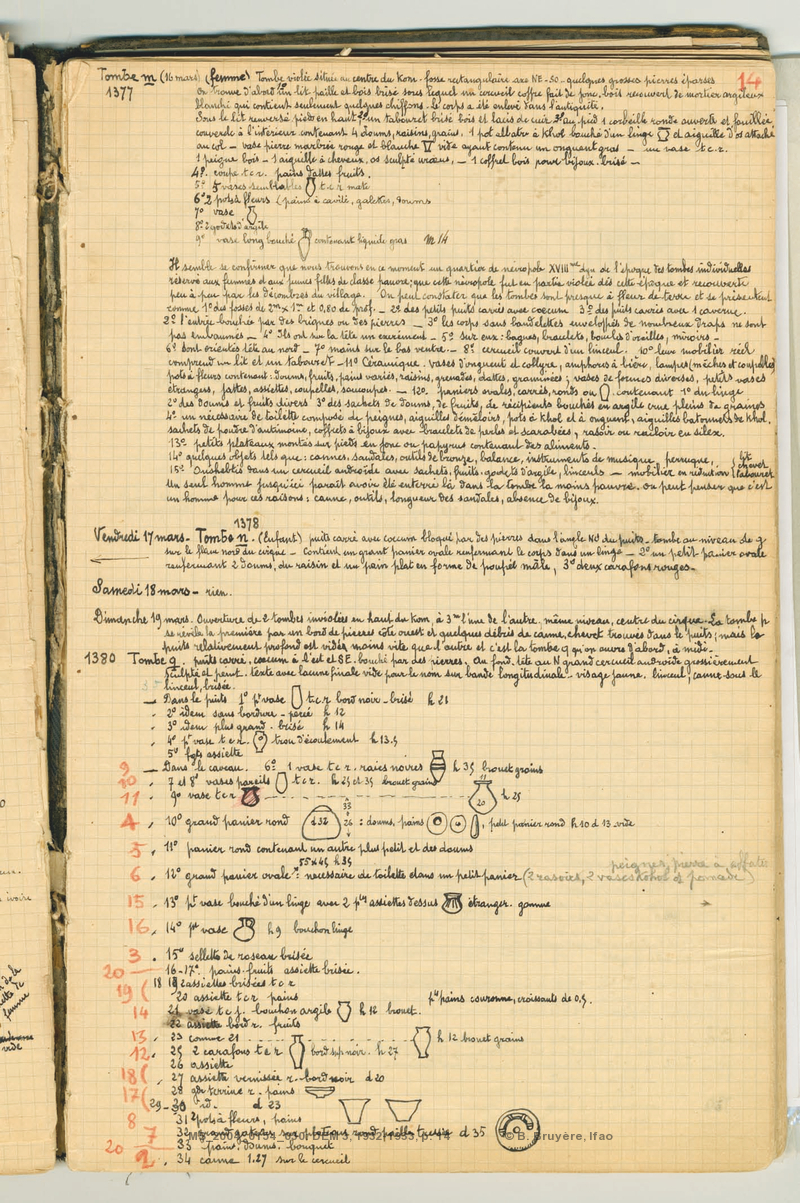 14
Tombe m (16 mars) (femme) Tombe violée située au centre du Kom. fosse rectangulaire axe NE-SO - quelques grosses pierres éparses
1377 On trouve d'abord 1° un lit paille et bois brisé sous lequel un cercueil coffre fait de jonc, bois recouvert de mortier argileux
blanchi qui contient seulement quelques chiffons. le corps a été enlevé dans l'antiquité.
Sous le lit renversé pieds en haut, 2° un tabouret brisé bois et lacis de cuir 3° au pied 1 corbeille ronde ouverte et fouillée
couverde à l'intérieur contenant 4 doums, raisins, grains. 1 pot albâtre à Khol bouché d'un linge et aiguille d'os attaché
au col - vase pierre marbrée rouge et blanche vide ayant contenu un onguent gras - un vase t.c.r.
1 peigne bois - 1 aiguille à cheveux, os sculpté uraeus, - 1 coffret bois pour bijoux. brisé -
4° coupe t.c.r. pains dattes fruits.
5° 5 vases semblables t.c.r mate
6° 2 pots à fleurs (pains à cavité, galettes, doums
7° vase
8° 2 godets d'argile
9° vase long bouché contenant liquide gras m 14
Il semble se confirmer que nous trouvons en ce moment un quartier de nécropole XVIIIme dyn de l'époque des tombes individuelles
réservé aux femmes et aux jeunes filles de classe pauvre; que cette nécropole fut en partie violée dès cette époque et recouverte
peu à peu par les décombres du village. On peut constater que les tombes sont presque à fleur de terre et se présentent
comme 1° des fosses de 2m x 1m et 0,80 de prof. - 2° des petits puits carrés avec coecum 3° des puits carrés avec 1 caverne.
2° l'entrée bouchée par des briques ou des pierres - 3° les corps sans bandelettes enveloppés de nombreux draps ne sont
pas embaumés - 4° Ils ont sur la tête un excrément - 5° sur eux: bagues, bracelets, boucles d'oreilles, miroirs -
6° sont orientés tête au nord - 7° mains sur le bas ventre. - 8° cercueil couvert d'un linceul. 10° leur mobilier réel
comprend un lit et un tabouret - 11° Céramique. vases d'onguent et collyre, amphores à bière, lampes (mèches et coupelles)
pots à fleurs contenant: doums, fruits, pains variés, raisins, grenades, dattes, graminées; vases de formes diverses, petits vases
étrangers, jattes, assiettes, coupelles, saucoupes. - 12° paniers ovales, carrés, ronds ou contenant 1° du linge
2° des doums et fruits divers 3° des sachets de doums, de fruits, de récipients bouchés en argile crue pleins de graines
4° un nécessaire de toilette composé de peignes, aiguilles démêloirs, pots à khol et à onguent, aiguilles batonnets de khol,
sachets de poudre d'antimoine, coffrets à bijoux avec bracelets de perles et scarabées, rasoir ou racloir en silex.
13° petits plateaux montés sur pieds en jonc ou papyrus contenant des aliments.
14° quelques objets tels que: cannes, sandales, outils de bronze, balance, instruments de musique, perruque, lit
15° Oushebtis dans un cercueil androïde avec sachets, fruits, godets d'argile, linceuls - mobilier en réduction chevet tabouret
Un seul homme jusqu'ici parait avoir été enterré là dans la tombe la moins pauvre. on peut penser que c'est
un homme pour ces raisons: canne, outils, longueur des sandales, absence de bijoux.
1378
Vendredi 17 mars - Tombe n. (Enfant) puits carré avec coecum bloqué par des pierres dans l'angle NO du puits - tombe au niveau de q
sur le flanc nord du cirque - Contient un grand panier ovale renfermant le corps dans un linge - 2° un petit panier ovale
renfermant 2 doums, du raisin et un pain plat en forme de poupée mâle, 3° deux carafons rouges.
Samedi 18 mars - rien.
Dimanche 19 mars. Ouverture de 2 tombes inviolées en haut du Kom, à 3m l'une de l'autre. même niveau, centre du cirque. La tombe p
se révéla la première par un bord de pierres côté ouest et quelques débris de canne, chevet trouvés dans le puits; mais le
puits relativement profond est vidé moins vite que l'autre et c'est la tombe q qu'on ouvre d'abord, à midi.
1380 Tombe q. puits carré, coecum à l'est et SE. bouché par des pierres. Au fond, tête au N grand cercueil androïde grossièrement
sculpté et peint. texte avec lacune finale vide pour le nom sur bande longitudinale - visage jaune. linceul; canne sous le
linceul, brisée.
- Dans le puits 1° pt vase t.c.r bord noir - brisé h 21
2° idem sans bordure - percé h 12
3° idem plus grand. brisé h 14
4° pt vase t.c.r. trou d'écoulement h 13.5
5° fgts assiette
9 - Dans le caveau. 6° 1 vase t.c.r. raies noires h 35 brouet grains
10 7 et 8° vases pareils t.c.r. h 25 et 35 brouet grains
11 9° vase t.c.r 20 h 25
4 10° grand panier rond d 32 33 26 : doums, pains , petit panier rond h 10 d 13 - vide
5 11° panier rond contenant un autre plus petit et des doums
55 x 45 h 35
peignes, pierre à affuter
6 12° grand panier ovale: nécessaire de toilette dans un petit panier (2 rasoirs, 2 vases Kohol et pomade)
15 13° pt vase bouché d'un linge avec 2 ptes assiettes dessus étranger. gomme
16 14° pt vase h 9 bouchon linge
3 15° sellette de roseau brisée
20 16-17° pains-fruits assiette brisée.
18 19 2 assiettes brisées t.c.r
19 ( 20 assiette t.c.r pains pts pains couronne, croissants de 0,5.
14 21 vase t.c.j. bouchon argile h 12 brouet.
22 assiette bord r. fruits
13 23 comme 21 h 12 brouet grains
12 25 2 carafons t.c.r bord sup noir. h 27
26 assiette
18 ( 27 assiette vernissée r. bord noir d 20
17 ( 28 gde terrine r. pains
29-30 id. d 23
8 31 2 pots à fleurs, pains
7 32 grand plateau rond paille tressée d 35
20 33 pains, doums. bouquet
2 34 canne 1.27 sur le cercueil
© B. Bruyère, Ifao